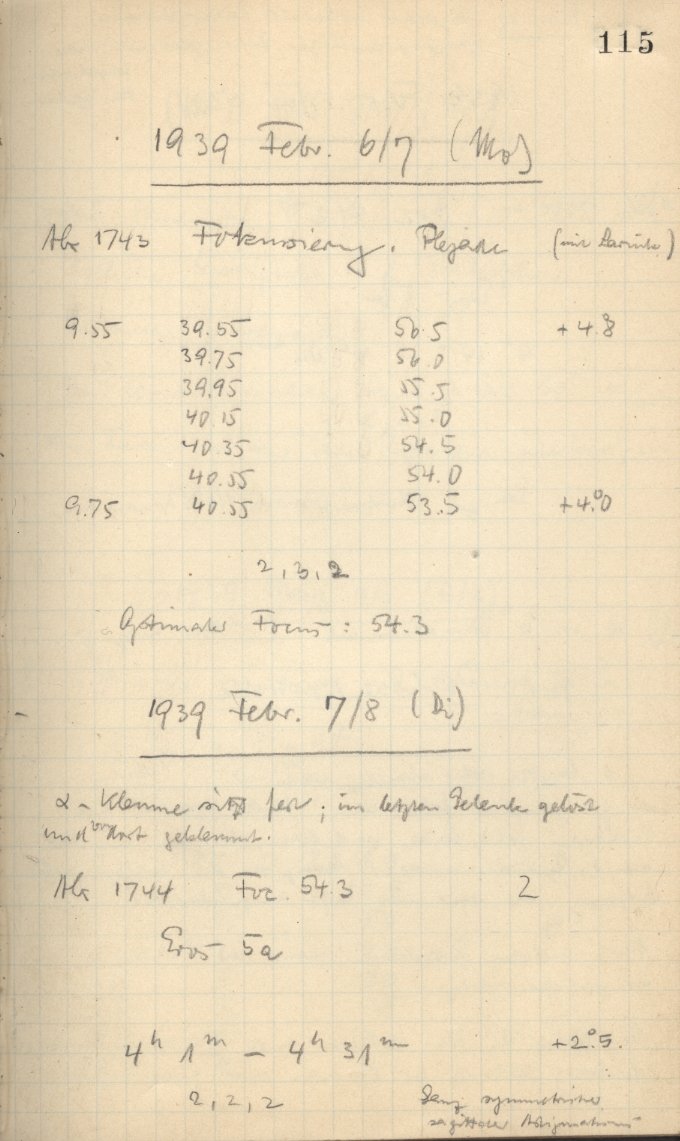 115
1939 Febr. 6/7 (Mo)
1743 Fokussierung. Plejade
9.55 39.55 56.5 +4.°8
39.75 56.0
39.95 55.5
40.15 55.0
40.35 54.5
40.55 54.0
9.75 40.55 53.5 +4.°0
2, 3, 2
Optimaler Focus : 54.3
1939 Febr. 7/8 (Di)
α - Klemme sitzt fest ; im letzten Gelenk gelöst
und von dort geklemmt.
1744 Foc. 54.3 2
Eros 5a
4ʰ 1ᵐ – 4ʰ 31ᵐ +2.°5.
2, 2, 2
Ganz symmetrischer
sagittaler Astigmatismus